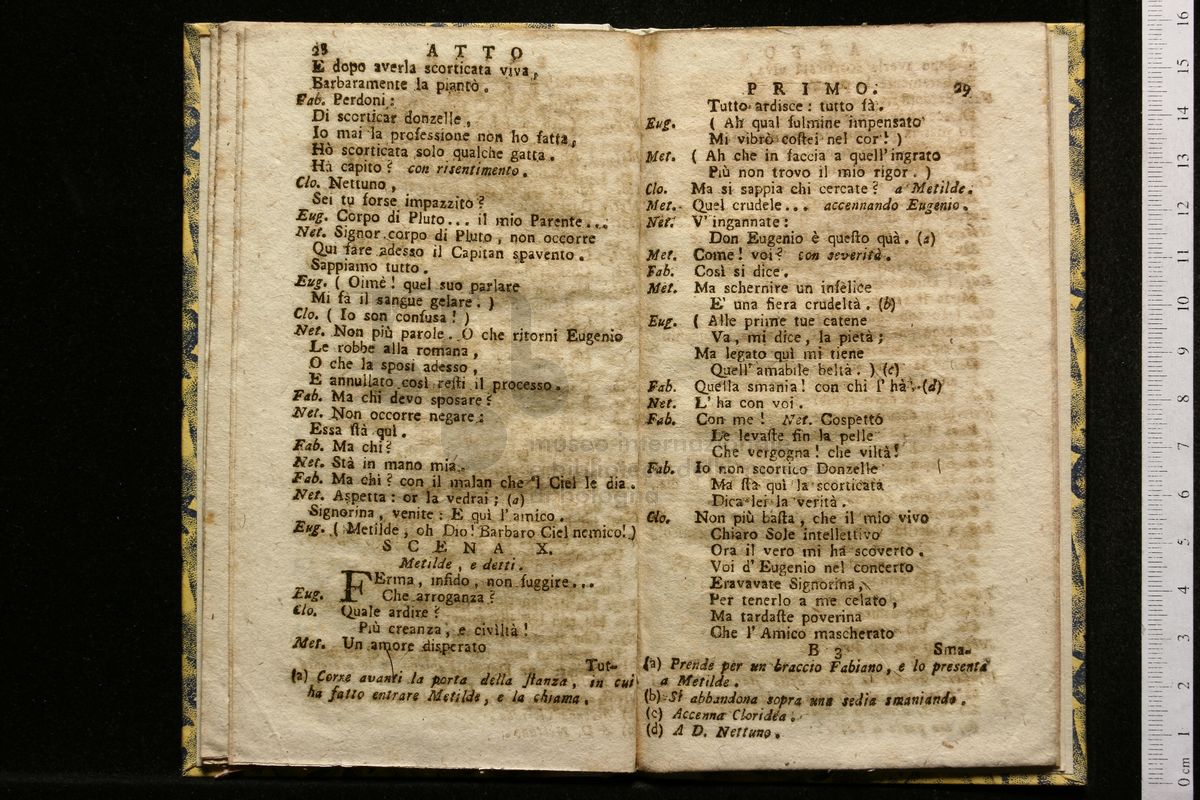 28 ATTO
E dopo averla scorticata viva,
Barbaramente la piantò.
Fab. Perdoni:
Di scorticar donzelle,
Io mai la professione non ho fatta,
Hò scorticata solo qualche gatta.
Hà capito? con risentimento.
Clo. Nettuno,
Sei tu forse impazzito?
Eug. Corpo di Pluto... il mio Parente...
Net. Signor corpo di Pluto, non occorre
Qui fare adesso il Capitan spavento.
Sappiamo tutto.
Eug. ( Oimè! quel suo parlare
Mi fà il sangue gelare. )
Clo. ( Io son confusa! )
Net. Non più parole. O che ritorni Eugenio
Le robbe alla romana,
O che la sposi adesso,
E annullato così resti il processo.
Fab. Ma chi devo sposare?
Net. Non occorre negare:
Essa stà quì.
Fab. Ma chi?
Net. Stà in mano mia.
Fab. Ma chi? con il malan che 'l Ciel le dia.
Net. Aspetta: or la vedrai; (a)
Signorina, venite: E quì l'amico.
Eug. ( Metilde, oh Dio! Barbaro Ciel nemico!)
SCENA X.
Metilde, e detti.
FErma, infido, non fuggire...
Eug. Che arroganza?
Clo. Quale ardire?
Più creanza, e civiltà!
Met. Un amore disperato
Tut-
(a) Corre avanti la porta della stanza, in cui
ha fatto entrare Metilde, e la chiama.
PRIMO. 29
Tutto ardisce: tutto fà.
Eug. ( Ah qual fulmine impensato
Mi vibrò costei nel cor! )
Met. ( Ah che in faccia a quell'ingrato
Più non trovo il mio rigor. )
Clo. Ma si sappia chi cercate? a Metilde.
Met. Quel crudele... accennando Eugenio.
Net. V'ingannate:
Don Eugenio è questo quà. (a)
Met. Come! voi? con severità.
Fab. Così si dice.
Met. Ma schernire un infelice
E' una fiera crudeltà. (b)
Eug. ( Alle prime tue catene
Va, mi dice, la pietà;
Ma legato quì mi tiene
Quell'amabile beltà. ) (c)
Fab. Quella smania! con chi l'hà? (d)
Net. L'ha con voi.
Fab. Con me! Net. Cospetto
Le levaste fin la pelle
Che vergogna! che viltà!
Fab. Io non scortico Donzelle
Ma sta quì la scorticata
Dica lei la verità.
Clo. Non più basta, che il mio vivo
Chiaro Sole intellettivo
Ora il vero mi ha scoverto.
Voi d'Eugenio nel concerto
Eravavate Signorina,
Per tenerlo a me celato,
Ma tardaste poverina
Che l'Amico mascherato
B 3 Sma-
(a) Prende per un braccio Fabiano, e lo presenta
a Metilde.
(b) Si abbandona sopra una sedia smaniando.
(c) Accenna Cloridea.
(d) A D. Nettuno.
museo internazionale
e biblioteca della
di bologna
16
15
14
13
12
11
10
9
8
7
6
5
4
3
2
1
0 cm